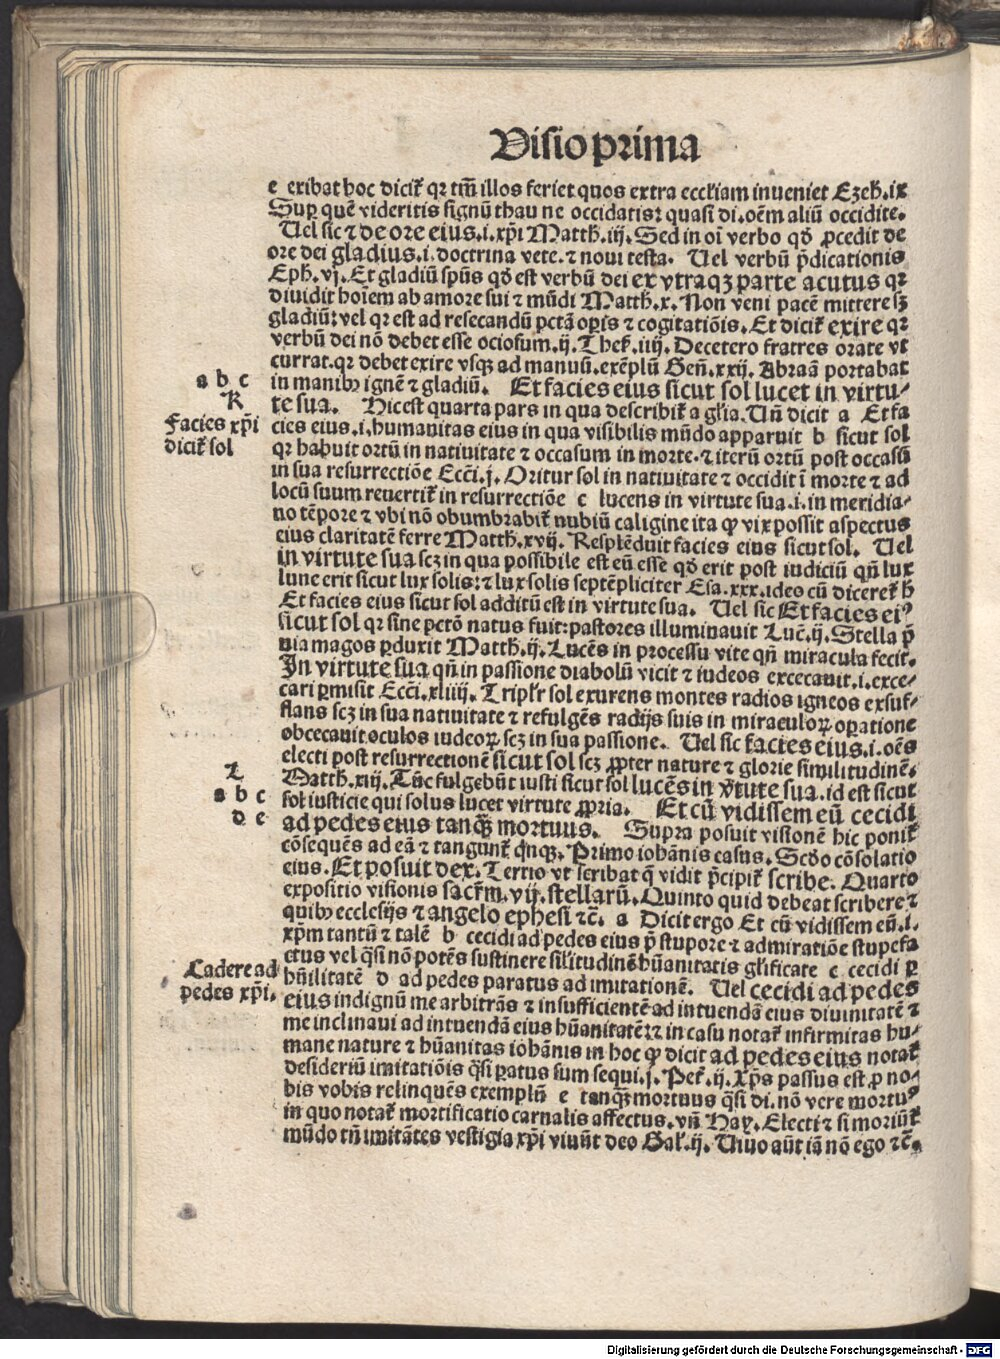 Visio prima
e exibat hoc dicit᷑ qr tm̄ illos feriet quos extra eccl'iam inueniet Ezeh̄.ix
Sup quē videritis signū thau ne occidatis: quasi di.oēm aliū occidite.
Uel sic ⁊ de ore eius.i.xp̄i Matth.iij. Sed in oī verbo qd̄ ꝓcedit de
ore dei gladius.i.doctrina vete.⁊ noui testa. Uel verbū p̄dicationis
Eph.vj. Et gladiū sp̄us qd̄ est verbū dei ex vtraqꝫ parte acutus qr
diuidit hoīem ab amore sui ⁊ mūdi Matth.x. Non veni pacē mittere sꝫ
gladiū: vel qr est ad resecandū pctā oꝑis ⁊ cogitatiōis. Et dicit᷑ exire qr
verbū dei nō debet esse ociosum.ij. Thes̄.iiij. Decetero fratres orate vt
currat.qr debet exire vsqꝫ ad manuū.exēplū Gen̄.xxij. Abraā portabat
a b c
in manibꝫ ignē ⁊ gladiū. Et facies eius sicut sol lucet in virtu⸗
K
te sua. Hic est quarta pars in qua describit᷑ a gl'ia. Un̄ dicit a Et fa
Facies xp̄i
cies eius.i.humanitas eius in qua visibilis mūdo apparuit b sicut sol
dicit᷑ sol
qr habuit ortū in natiuitate ⁊ occasum in morte.⁊ iterū ortū post occasū
in sua resurrectiōe Ecci.j. Oritur sol in natiuitate ⁊ occidit ī morte ⁊ ad
locū suum reuertit᷑ in resurrectiōe c lucens in virtute sua.i.in meridia⸗
no tēpore ⁊ vbi nō obumbrabit᷑ nubiū caligine ita ꝙ vix possit aspectus
eius claritatē ferre Matth.xvij. Resplēduit facies eius sicut sol. Uel
in virtute sua scꝫ in qua possibile est eū esse qd̄ erit post iudiciū qn̄ lux
lune erit sicut lux solis: ⁊ lux solis septēpliciter Esa.xxx.ideo cū diceret᷑ h̄
Et facies eius sicut sol additū est in virtute sua. Uel sic Et facies ei⁹
sicut sol qr sine pctō natus fuit: pastores illuminauit Luc̄.ij. Stella p̄
uia magos ꝑduxit Matth.ij. Lucēs in processu vite qn̄ miracula fecit.
In virtute sua qn̄ in passione diabolū vicit ⁊ iudeos excecauit.i.exce⸗
cari ꝑmisit Ecci.xliiij. Tripl'r sol exurens montes radios igneos exsuf⸗
flans scꝫ in sua natiuitate ⁊ refulgēs radijs suis in miraculoꝝ oꝑatione
obcecauit oculos iudeoꝝ scꝫ in sua passione. Uel sic facies eius.i.oēs
electi post resurrectionē sicut sol scꝫ ꝓpter nature ⁊ glorie similitudinē.
L
Matth.xiij. Tūc fulgebūt iusti sicut sol lucēs in v̄tute sua.id est sicut
a b c
sol iusticie qui solus lucet virtute ꝓpria. Et cū vidissem eū cecidi
d e
ad pedes eius tanq̄ꝫ mortuus. Supra posuit visionē hic ponit᷑
cōsequēs ad eā ⁊ tangunt᷑ q̄nqꝫ. Primo iohānis casus. Scd̄o cōsolatio
eius. Et posuit dex. Tertio vt scribat q̄ vidit p̄cipit᷑ scribe. Quarto
expositio visionis sacr̄m.vij.stellarū. Quinto quid debeat scribere ⁊
quibꝫ ecclesijs ⁊ angelo ephesi ⁊c̄. a Dicit ergo Et cū vidissem eū.i.
xp̄m tantū ⁊ talē b cecidi ad pedes eius p̄ stupore ⁊ admiratiōe stupefa
ctus vel q̄si nō potēs sustinere sil'itudinē hūanitatis gl'ificate c cecidi ꝑ
Cadere ad
hūilitatē d ad pedes paratus ad imitationē. Uel cecidi ad pedes
pedes xp̄i.
eius indignū me arbitrās ⁊ insufficientē ad intuendā eius diuinitatē ⁊
me inclinaui ad intuendā eius hūanitatē: ⁊ in casu notat᷑ infirmitas hu⸗
mane nature ⁊ hūanitas iohānis in hoc ꝙ dicit ad pedes eius notat᷑
desideriū imitatiōis q̄si ꝑatus sum sequi.j. Pet᷑.ij. Xp̄s passus est ꝓ no⸗
bis vobis relinquēs exemplū e tanq̄ꝫ mortuus q̄si di.nō vere mortu⁹
in quo notat᷑ mortificatio carnalis affectus.vn̄ Hay. Electi ⁊ si moriūt᷑
mūdo tn̄ imitātes vestigia xp̄i viuūt deo Gal'.ij. Uiuo aūt iā nō ego ⁊c̄.
Digitalisierung gefördert durch die Deutsche Forschungsgemeinschaft - DFG